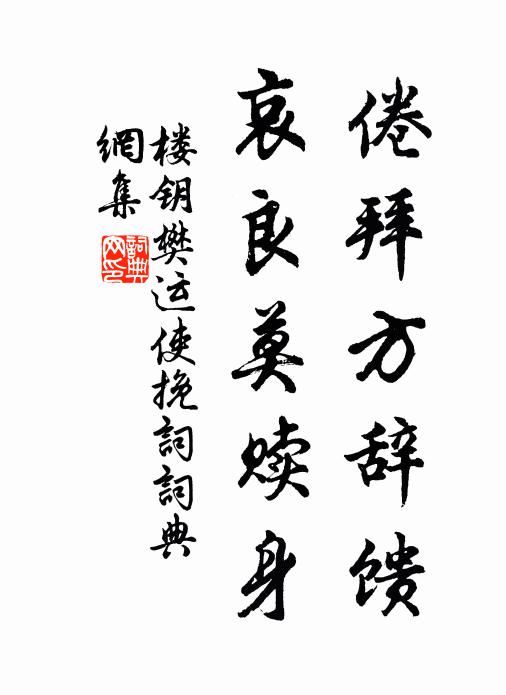 倦拜方辞馈
哀良莫赎身
楼钥樊运使挽词詞典
網集
詞典网印